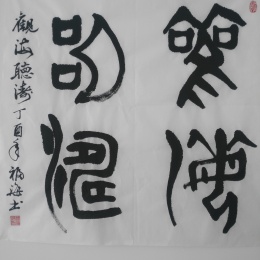 觀海
聽濤
觀海聽濤丁酉年福海書